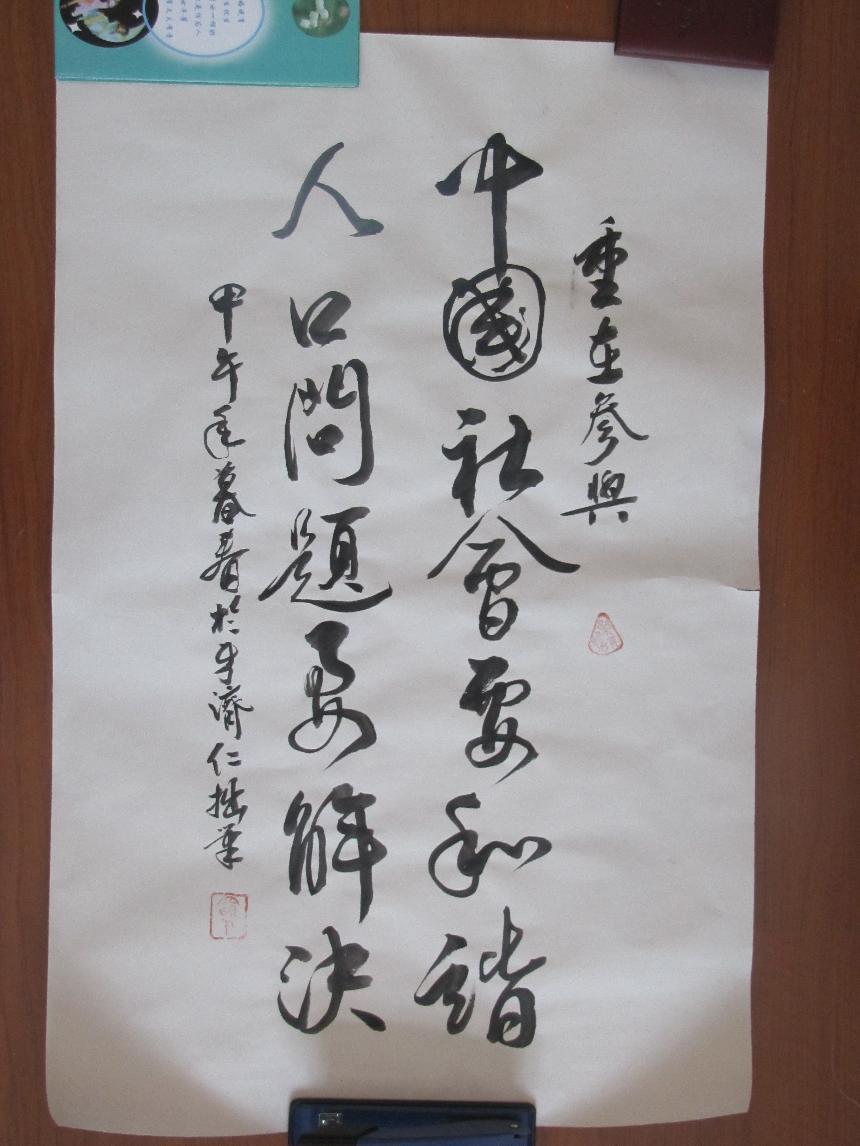 重在參與
中國社會要和諧
人口問題要解決
甲午年暮春於 濟仁拙筆